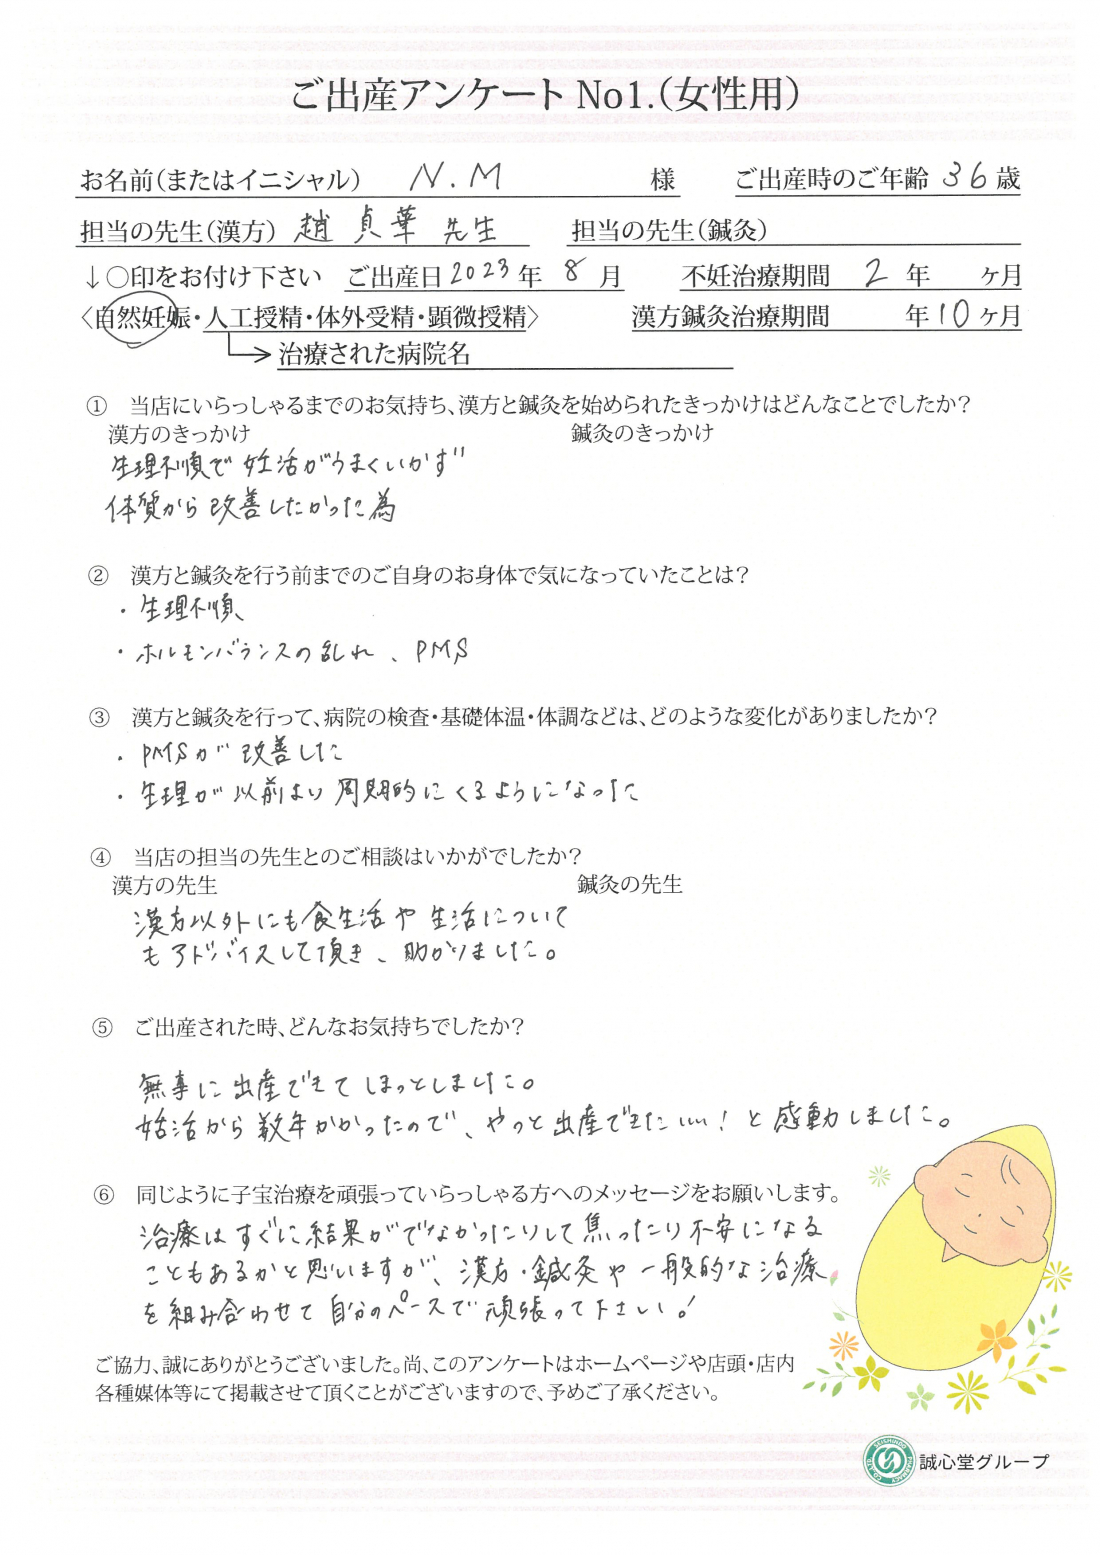 ご出産アンケート No1.（女性用）
お名前（またはイニシャル） N.M 様 ご出産時のご年齢 36 歳
担当の先生（漢方） 趙 貞華 先生 担当の先生（鍼灸）
↓○印をお付け下さい ご出産日 2023 年 8 月 不妊治療期間 2 年 ヶ月
〈自然妊娠・人工授精・体外受精・顕微授精〉 漢方鍼灸治療期間 年 10 ヶ月
治療された病院名
① 当店にいらっしゃるまでのお気持ち、漢方と鍼灸を始められたきっかけはどんなことでしたか？
漢方のきっかけ 鍼灸のきっかけ
生理不順で妊活がうまくいかず
体質から改善したかった為
② 漢方と鍼灸を行う前までのご自身のお身体で気になっていたことは？
・生理不順
・ホルモンバランスの乱れ、PMS
③ 漢方と鍼灸を行って、病院の検査・基礎体温・体調などは、どのような変化がありましたか？
・PMSが改善した
・生理が以前より周期的にくるようになった
④ 当店の担当の先生とのご相談はいかがでしたか？
漢方の先生 鍼灸の先生
漢方以外にも食生活や生活について
もアドバイスして頂き、助かりました。
⑤ ご出産された時、どんなお気持ちでしたか？
無事に出産できてほっとしました。
妊活から数年かかったので、やっと出産できた…！と感動しました。
⑥ 同じように子宝治療を頑張っていらっしゃる方へのメッセージをお願いします。
治療はすぐに結果がでなかったりして焦ったり不安になる
こともあるかと思いますが、漢方・鍼灸や一般的な治療
を組み合わせて自分のペースで頑張って下さい！
ご協力、誠にありがとうございました。尚、このアンケートはホームページや店頭・店内
各種媒体等にて掲載させて頂くことがございますので、予めご了承ください。
SEISHINDO PHARMACY CO.,LTD. 誠心堂グループ